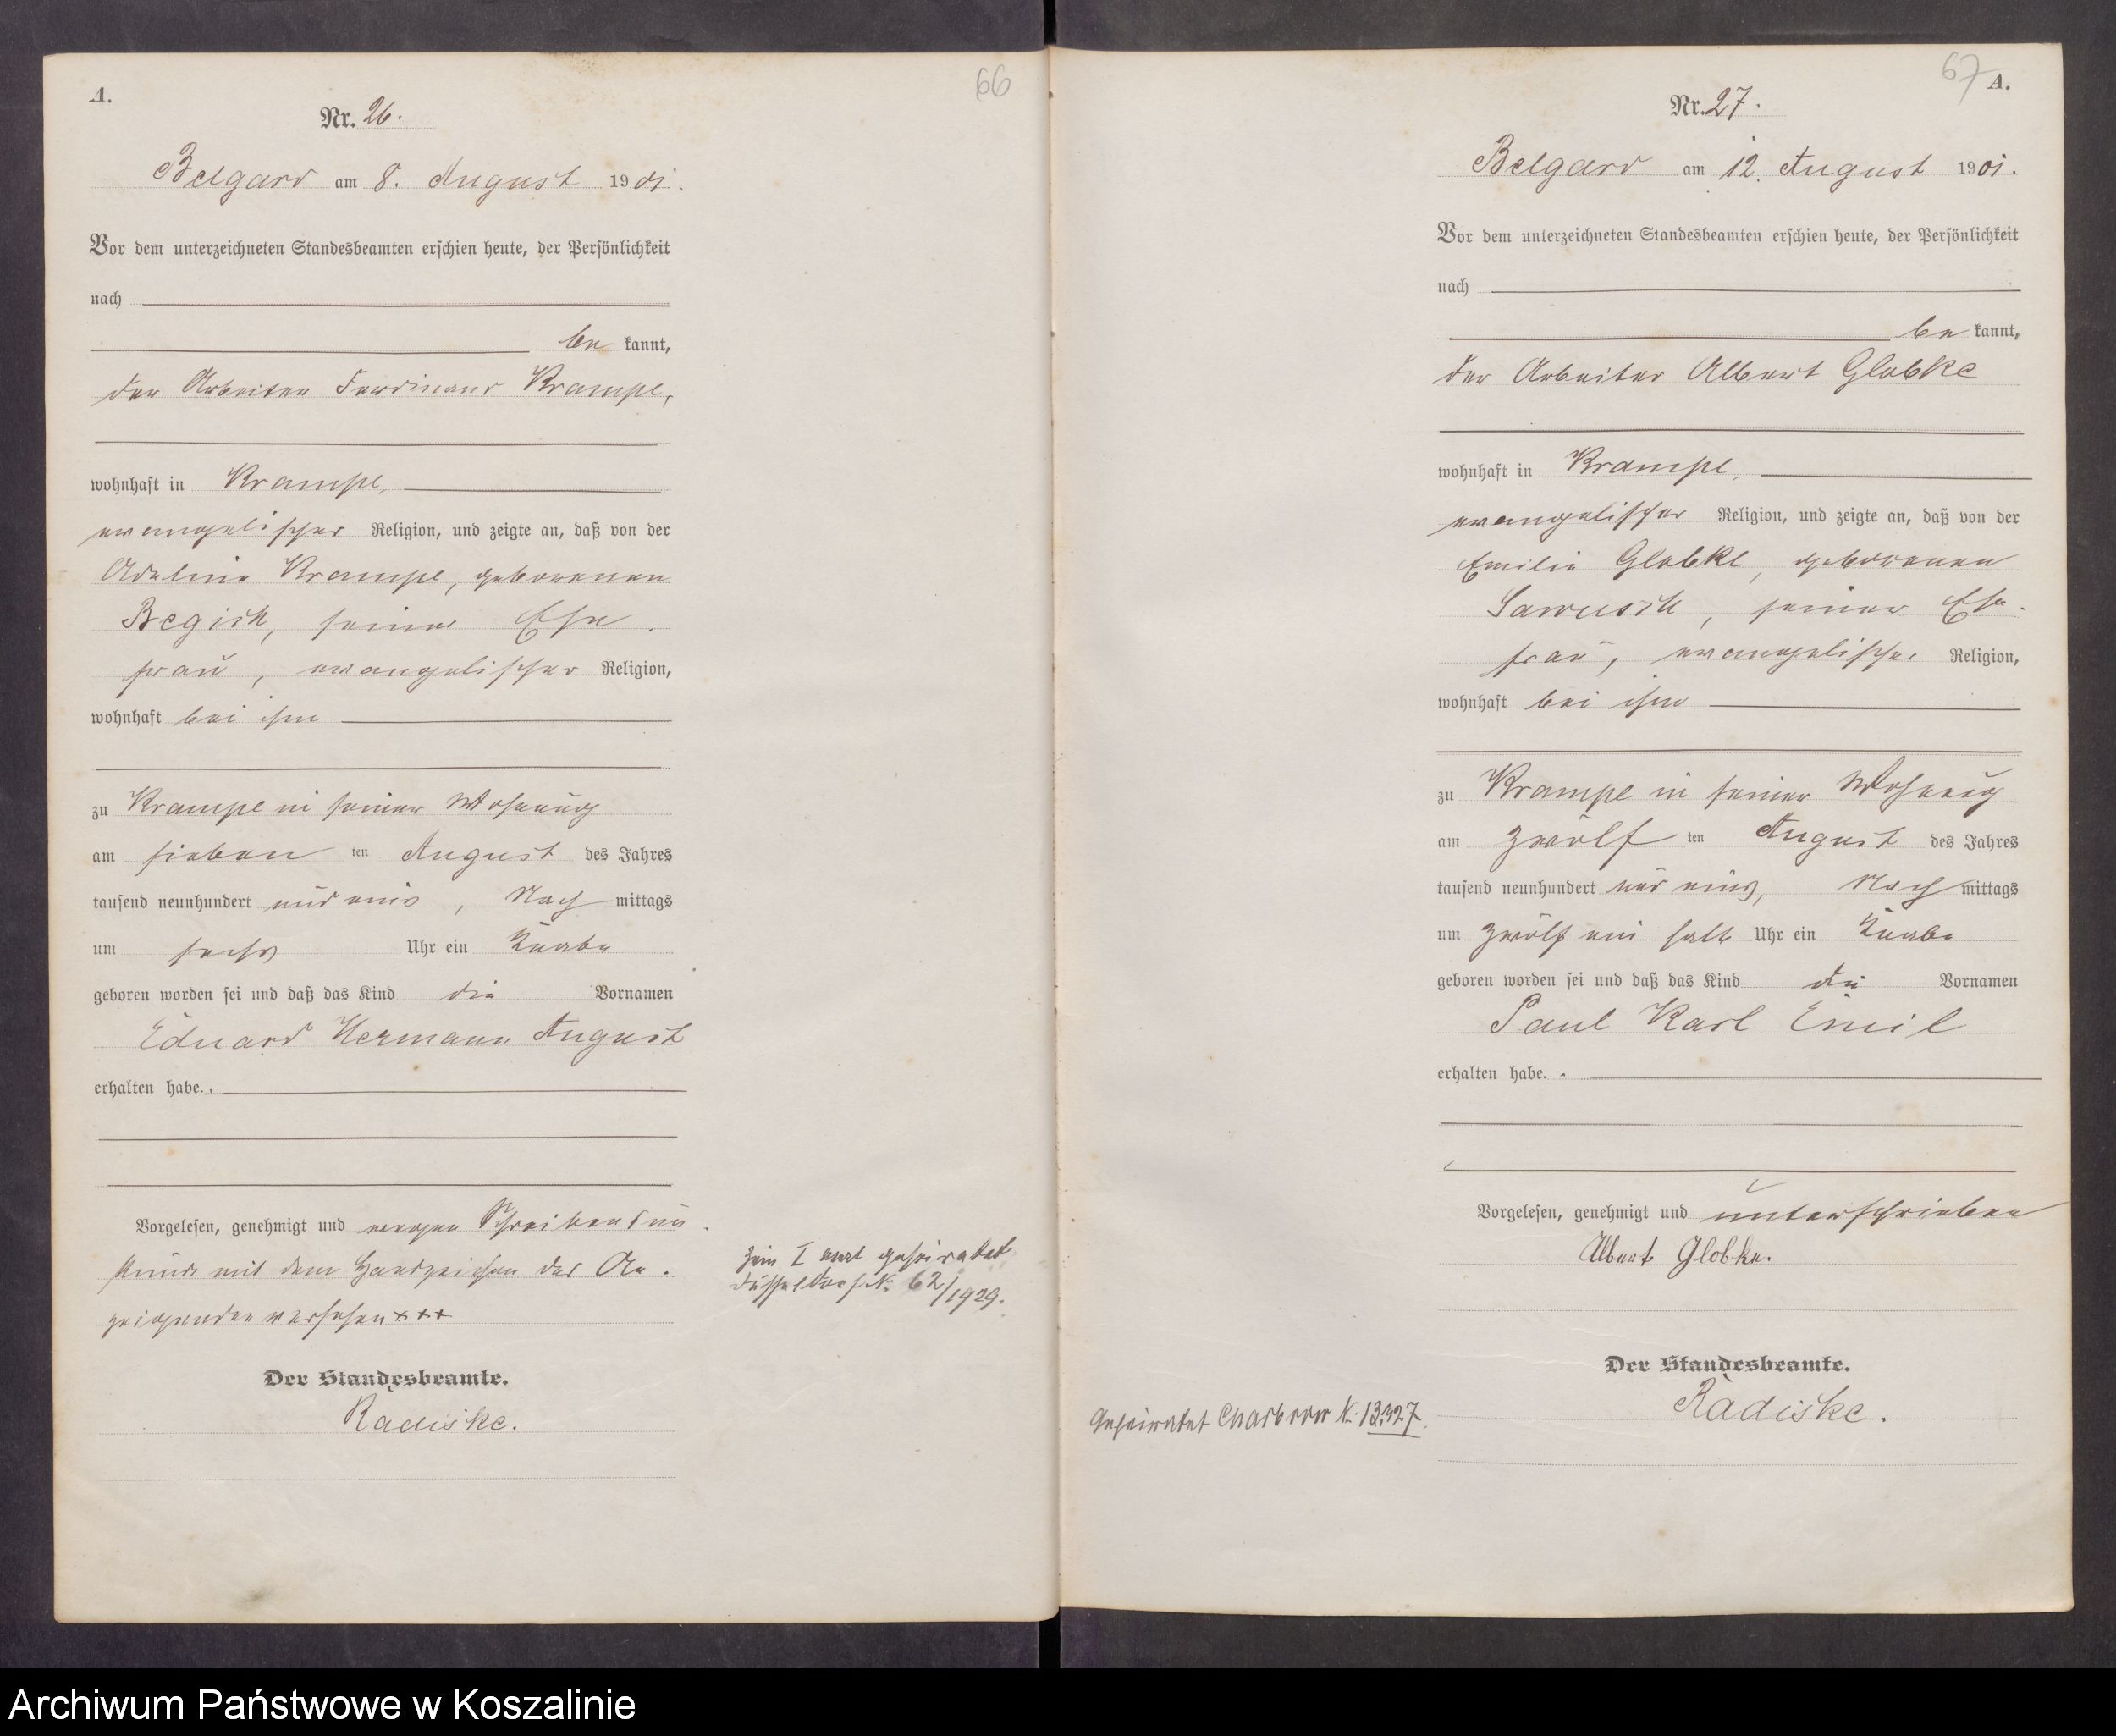 A.
66
Nr. 26.
Belgard am 8. August 1901.
Vor dem unterzeichneten Standesbeamten erschien heute, der Persönlichkeit
nach
be kannt,
der Arbeiter Ferdinand Krampe,
wohnhaft in Krampe,
evangelischer Religion, und zeigte an, daß von der
Adeline Krampe, geborenen
Begich, seiner Ehe
frau, evangelischer Religion,
wohnhaft bei ihm
zu Krampe in seiner Wohnung
am sieben ten August des Jahres
tausend neunhundert und eins, Nach mittags
um sechs Uhr ein Knabe
geboren worden sei und daß das Kind die Vornamen
Eduard Hermann August
erhalten habe.
Vorgelesen, genehmigt und wegen Schreibensun
kunde mit dem Handzeichen des An
zeigenden versehen +++
Der Standesbeamte.
Radiske.
Zum I mal geheiratet
Düsseldorf N: 62/1929.
67
A.
Nr. 27.
Belgard am 12. August 1901.
Vor dem unterzeichneten Standesbeamten erschien heute, der Persönlichkeit
nach
be kannt,
der Arbeiter Albert Globke
wohnhaft in Krampe,
evangelischer Religion, und zeigte an, daß von der
Emilie Globke, geborenen
seiner Ehe
frau, evangelischer Religion,
wohnhaft bei ihm
zu Krampe in seiner Wohnung
am zwölf ten August des Jahres
tausend neunhundert und eins, Nach mittags
um zwölf ein halb Uhr ein Knabe
geboren worden sei und daß das Kind die Vornamen
Paul Karl Emil
erhalten habe.
Vorgelesen, genehmigt und unterschrieben
Albert Globke.
Der Standesbeamte.
Radiske.
Geheiratet
Archiwum Państwowe w Koszalinie